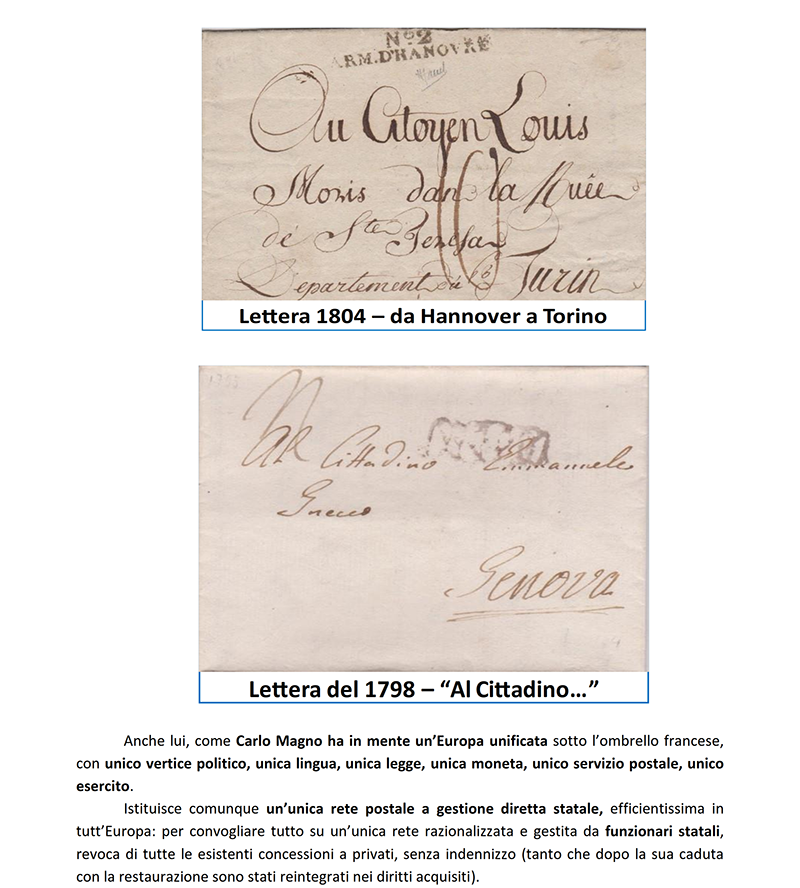 Nº 2
ARM. D'HANOVRE
Au Citoyen Louis
Moris dans la Ruëe
de Ste Teresa
Departement du Pô Turin
Lettera 1804 – da Hannover a Torino
Al Cittadino Emmanuele
Gnecco
Genova
Lettera del 1798 – “Al Cittadino…”
Anche lui, come Carlo Magno ha in mente un’Europa unificata sotto l’ombrello francese,
con unico vertice politico, unica lingua, unica legge, unica moneta, unico servizio postale, unico
esercito.
Istituisce comunque un’unica rete postale a gestione diretta statale, efficientissima in
tutt’Europa: per convogliare tutto su un’unica rete razionalizzata e gestita da funzionari statali,
revoca di tutte le esistenti concessioni a privati, senza indennizzo (tanto che dopo la sua caduta
con la restaurazione sono stati reintegrati nei diritti acquisiti).